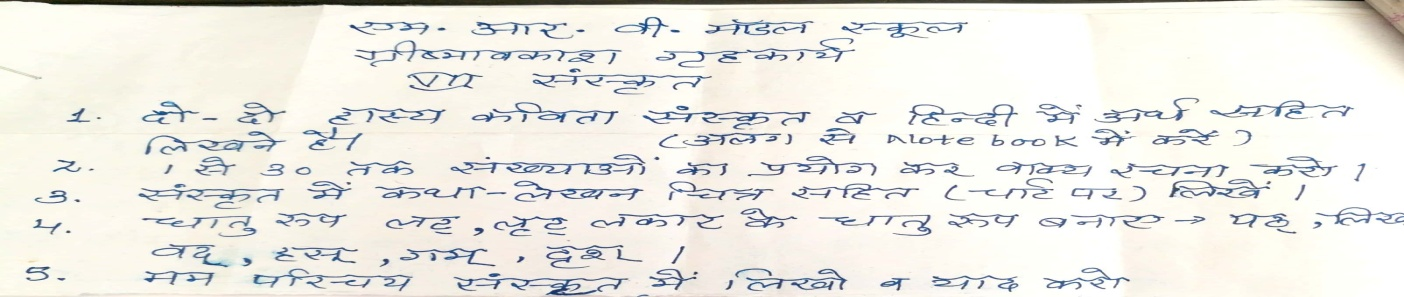 एम. आर. वी. मॉडल स्कूल
ग्रीष्मावकाश गृहकार्य
VII संस्कृत
1. दो-दो हास्य कविता संस्कृत व हिन्दी में अर्थ सहित
लिखने है। (अलग से Notebook में करें)
2. 1 से 30 तक संख्याओं का प्रयोग कर वाक्य रचना करो।
3. संस्कृत में कथा-लेखन चित्र सहित (चार्ट पर) लिखें।
4. धातु रूप लट्, लृट् लकार के धातु रूप बनाए → पठ्, लिख
वद्, हस्, गम्, दृश् ।
5. मम परिचय संस्कृत में लिखो व याद करो